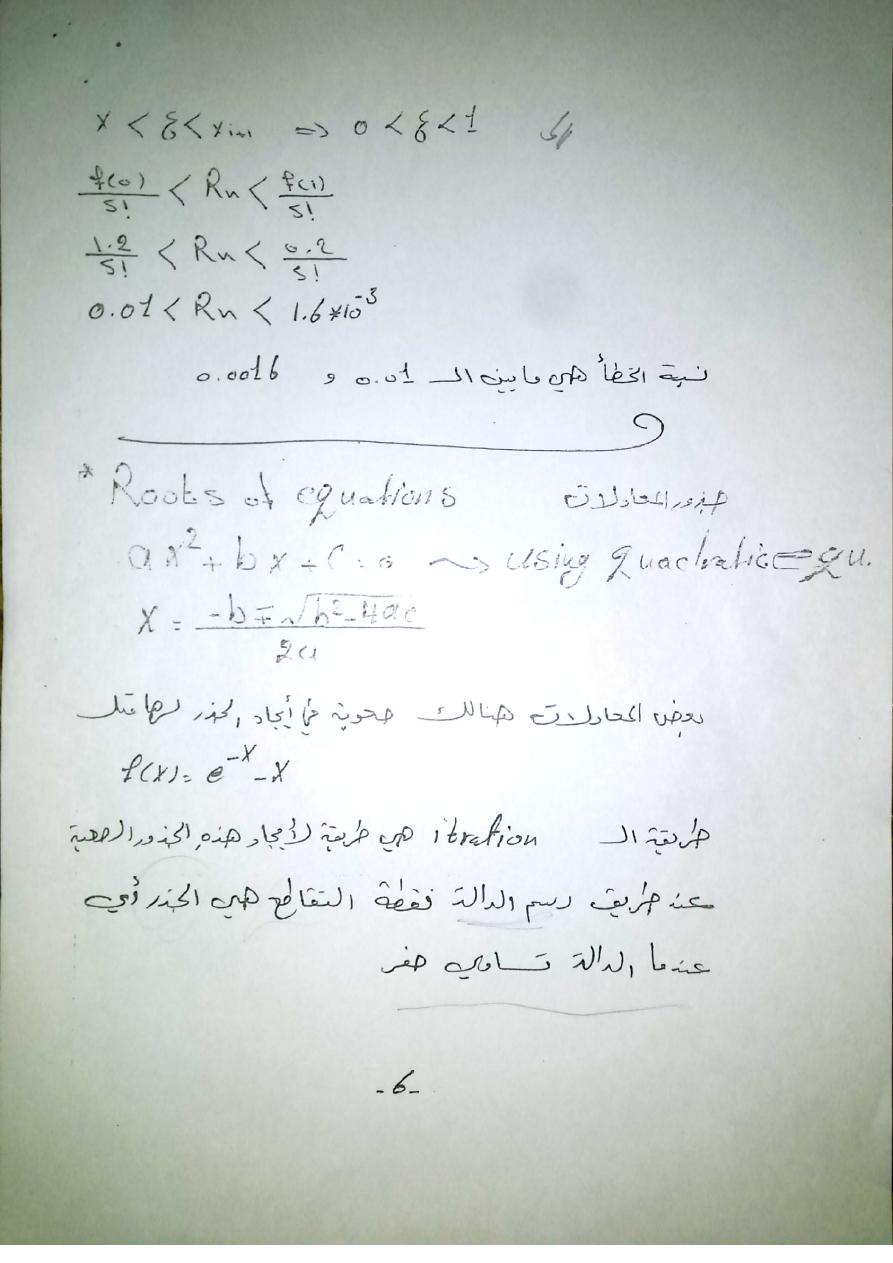 x < ξ < xi+1 => 0 < ξ < 1
f(0)/5! < Rn < f(1)/5!
1.2/5! < Rn < 0.2/5!
0.01 < Rn < 1.6*10^-3
نسبة الخطأ هي مابين الـ 0.01 و 0.0016
* Roots of equations جذور المعادلات
ax^2 + bx + c = 0 ~> using quadratic equ.
x = -b ∓ √(b^2-4ac) / 2a
بعض المعادلات هنالك صعوبة في أيجاد الجذر لها مثل
f(x) = e^-x - x
طريقة الـ itration هي طريقة لأيجاد هذه الجذور الصعبة
عن طريق رسم الدالة فنقطة التقاطع هي الجذر أي
عندما الدالة تساوي صفر
-6-